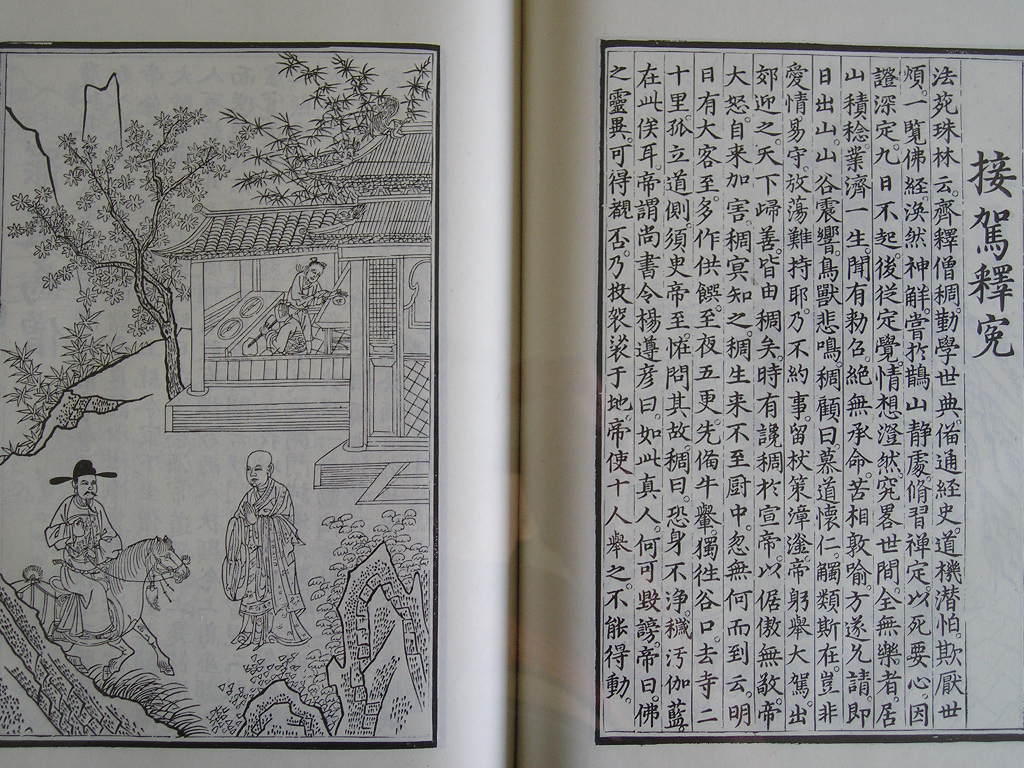 接駕釋寃
法苑珠林云。齊釋僧稠。勤學世典。俻通經史。道機潛怕。欺厭世
煩。一覧佛経。渙然神解。甞扵鵲山静處。脩習禅定。以死要心。因
證深定。九日不起。後従定覺。情想澄然。究畧世間。全無樂者。居
山積稔。業濟一生。聞有勑召。絶無承命。苦相敦喻。方遂允請。即
日出山。山谷震響。鳥獸悲鳴。稠顧曰。慕道懷仁。觸類斯在。豈非
愛情易守。放蕩難持耶。乃不約事留。杖策漳滏。帝躬舉大駕。出
郊迎之。天下歸善。皆由稠矣。時有讒稠扵宣帝。以倨傲無敬。帝
大怒。自来加害。稠冥知之。稠生来不至厨中。忽無何而到云。明
日有大客至。多作供饌。至夜五更。先俻牛轝。獨徃谷口。去寺二
十里。孤立道側。須史帝至。恠問其故。稠曰。恐身不浄。穢汚伽藍。
在此俟耳。帝謂尚書令楊遵彦曰。如此真人。何可毀謗。帝曰。佛
之靈異。可得覩否。乃投袈裟于地。帝使十人舉之。不能得動。